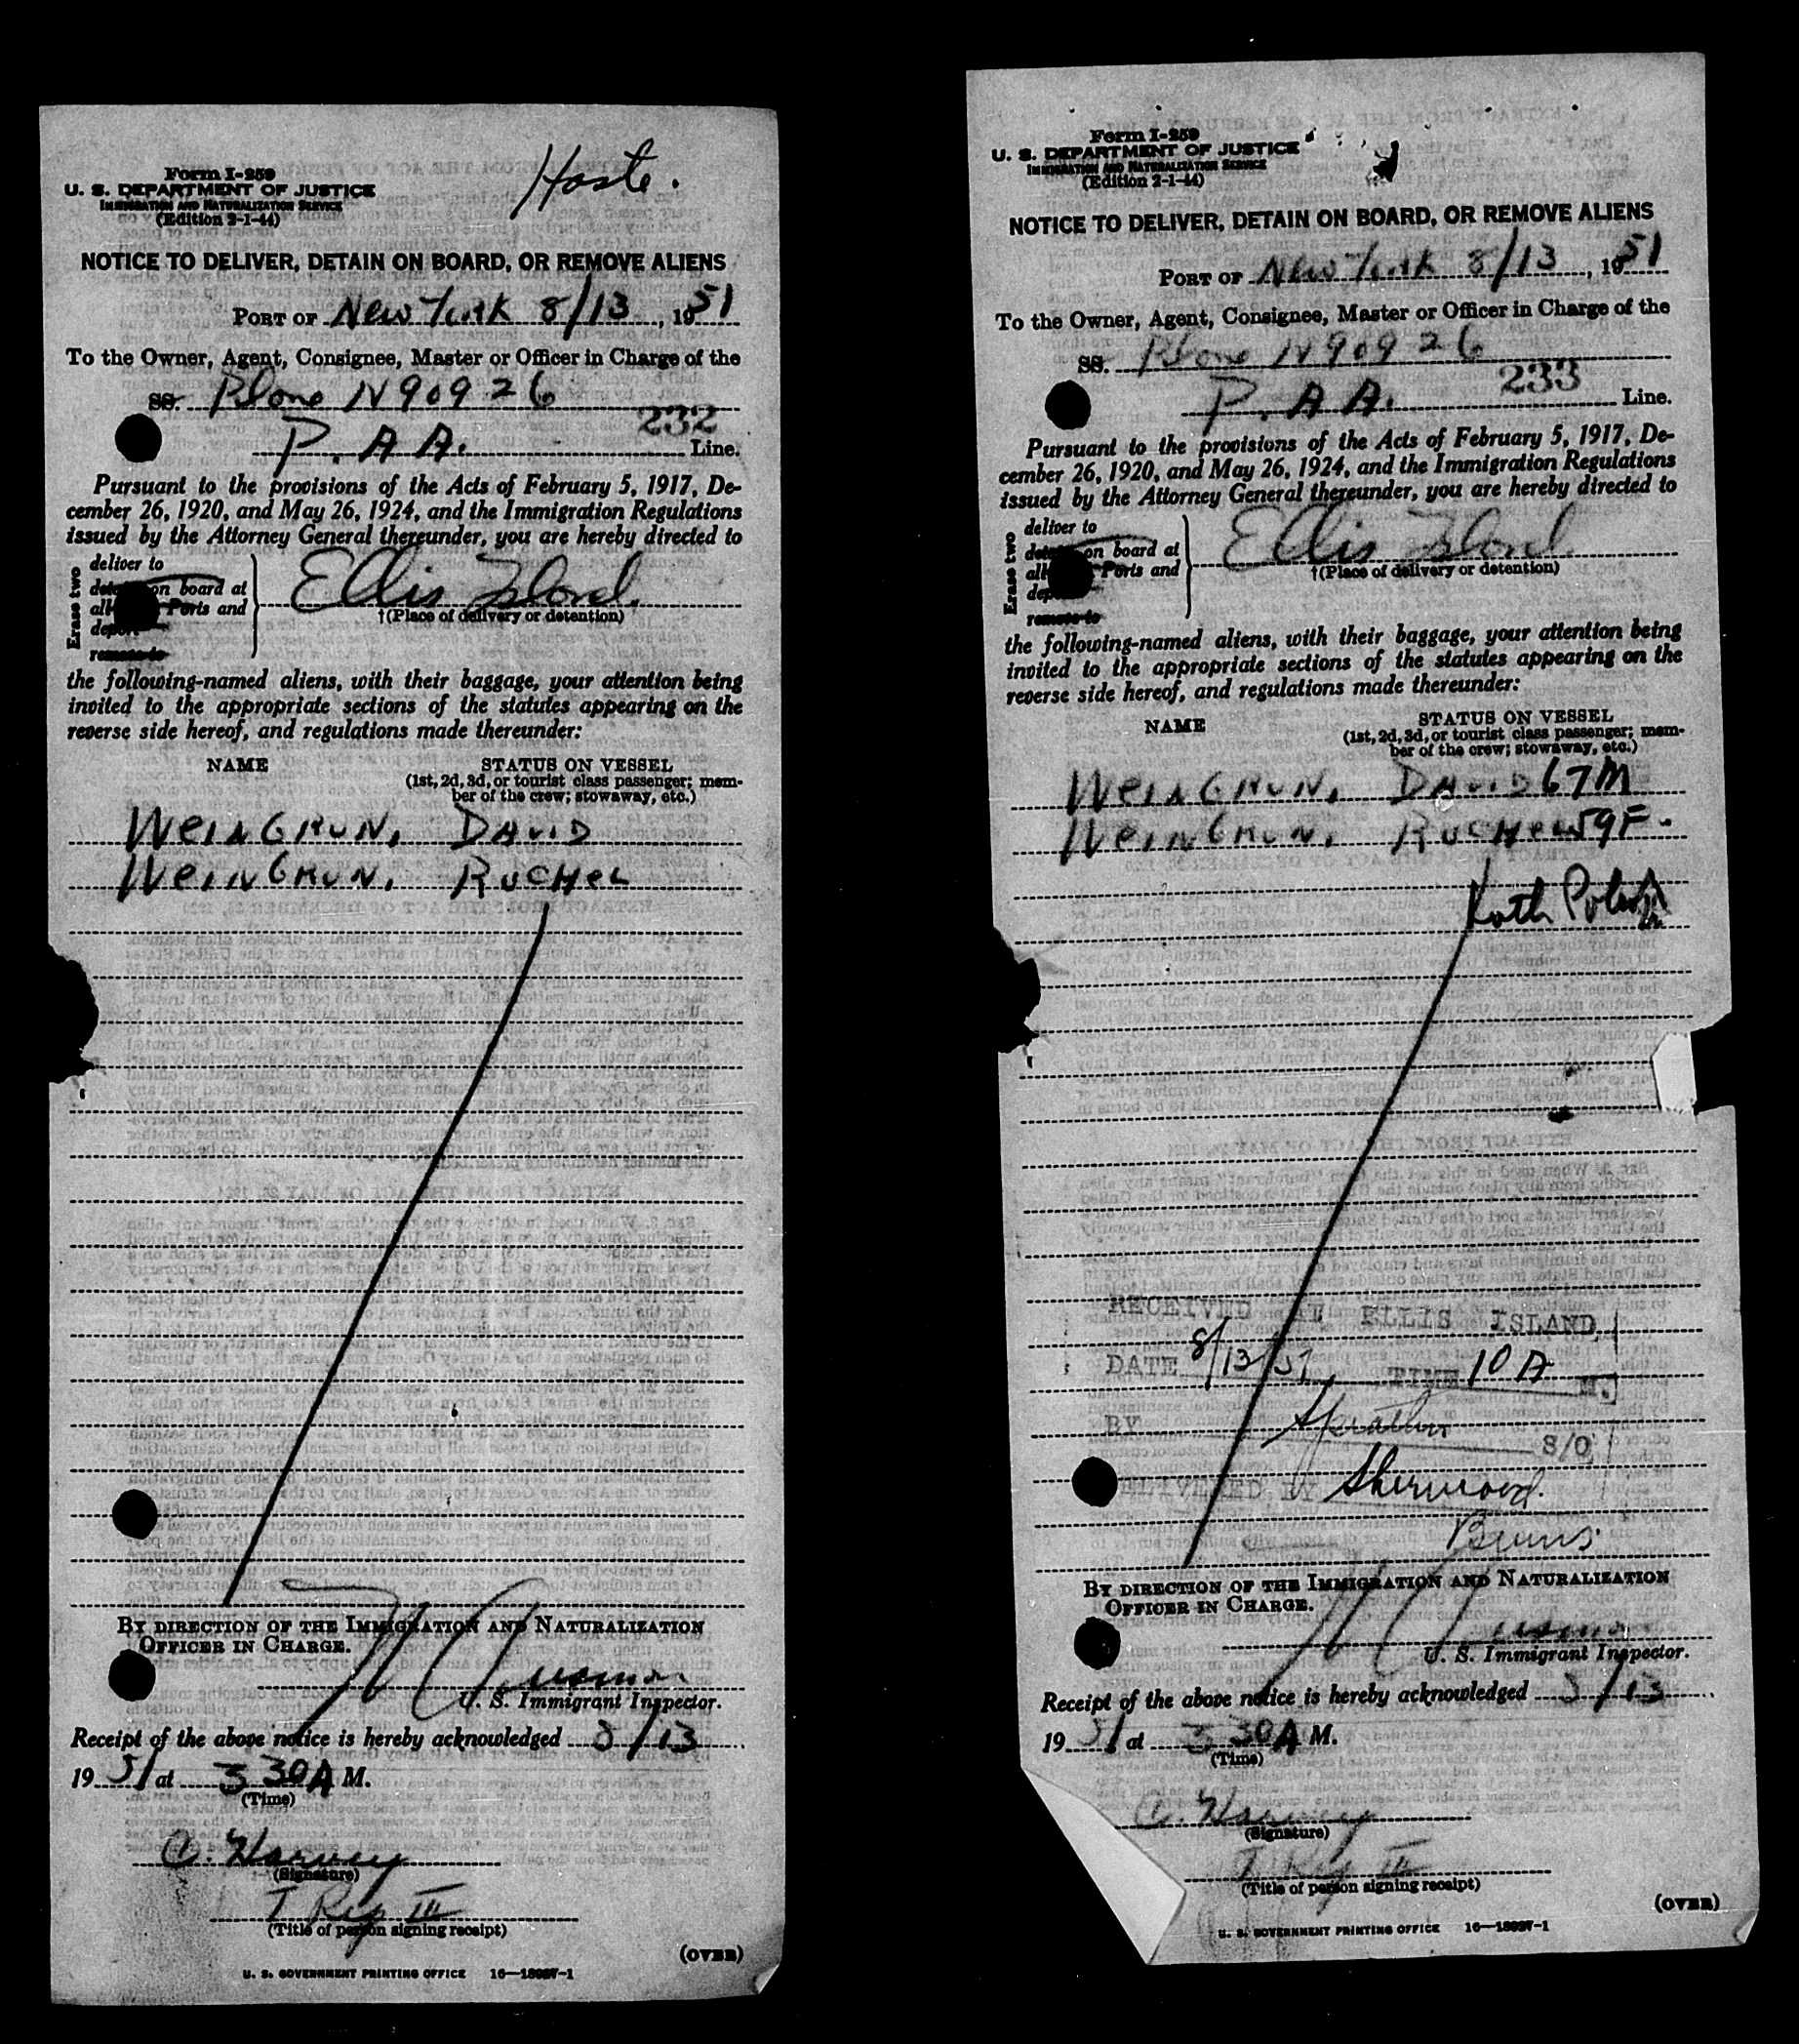 Form I-259
U. S. DEPARTMENT OF JUSTICE
IMMIGRATION AND NATURALIZATION SERVICE
(Edition 2-1-44)
NOTICE TO DELIVER, DETAIN ON BOARD, OR REMOVE ALIENS
PORT OF New York 8/13, 1951
To the Owner, Agent, Consignee, Master or Officer in Charge of the
SS. Plane N90926
232
P. A A. Line.
Pursuant to the provisions of the Acts of February 5, 1917, De-
cember 26, 1920, and May 26, 1924, and the Immigration Regulations
issued by the Attorney General thereunder, you are hereby directed to
Erase two
deliver to
on board at
all Ports and
remove to
Ellis Island.
†(Place of delivery or detention)
the following-named aliens, with their baggage, your attention being
invited to the appropriate sections of the statutes appearing on the
reverse side hereof, and regulations made thereunder:
NAME STATUS ON VESSEL
(1st, 2d, 3d, or tourist class passenger; mem-
ber of the crew; stowaway, etc.)
WeinGRUN, DAVID
WeinGRUN, RUCHeL
BY DIRECTION OF THE IMMIGRATION AND NATURALIZATION
OFFICER IN CHARGE.
U. S. Immigrant Inspector.
Receipt of the above notice is hereby acknowledged 8/13
1951 at 3 30 A M.
(Time)
C. Harvey
(Signature)
T Rep III
(Title of person signing receipt)
(OVER)
U. S. GOVERNMENT PRINTING OFFICE 16—18027-1
Form I-259
U. S. DEPARTMENT OF JUSTICE
IMMIGRATION AND NATURALIZATION SERVICE
(Edition 2-1-44)
NOTICE TO DELIVER, DETAIN ON BOARD, OR REMOVE ALIENS
PORT OF New York 8/13, 1951
To the Owner, Agent, Consignee, Master or Officer in Charge of the
SS. Plane N90926
233
P. A A. Line.
Pursuant to the provisions of the Acts of February 5, 1917, De-
cember 26, 1920, and May 26, 1924, and the Immigration Regulations
issued by the Attorney General thereunder, you are hereby directed to
Erase two
deliver to
on board at
all Ports and
remove to
Ellis Island
†(Place of delivery or detention)
the following-named aliens, with their baggage, your attention being
invited to the appropriate sections of the statutes appearing on the
reverse side hereof, and regulations made thereunder:
NAME STATUS ON VESSEL
(1st, 2d, 3d, or tourist class passenger; mem-
ber of the crew; stowaway, etc.)
WeinGRUN, DAVID 67M
WeinGRUN, RUCHeL 59F.
RECEIVED AT ELLIS ISLAND
DATE 8/13/51 TIME 10 A M.
BY S/O
DELIVERED BY Sherwood.
Burns
BY DIRECTION OF THE IMMIGRATION AND NATURALIZATION
OFFICER IN CHARGE.
U. S. Immigrant Inspector.
Receipt of the above notice is hereby acknowledged 8/13
1951 at 3 30 A M.
(Time)
C. Harvey
(Signature)
T Rep III
(Title of person signing receipt)
(OVER)
U. S. GOVERNMENT PRINTING OFFICE 16—18027-1